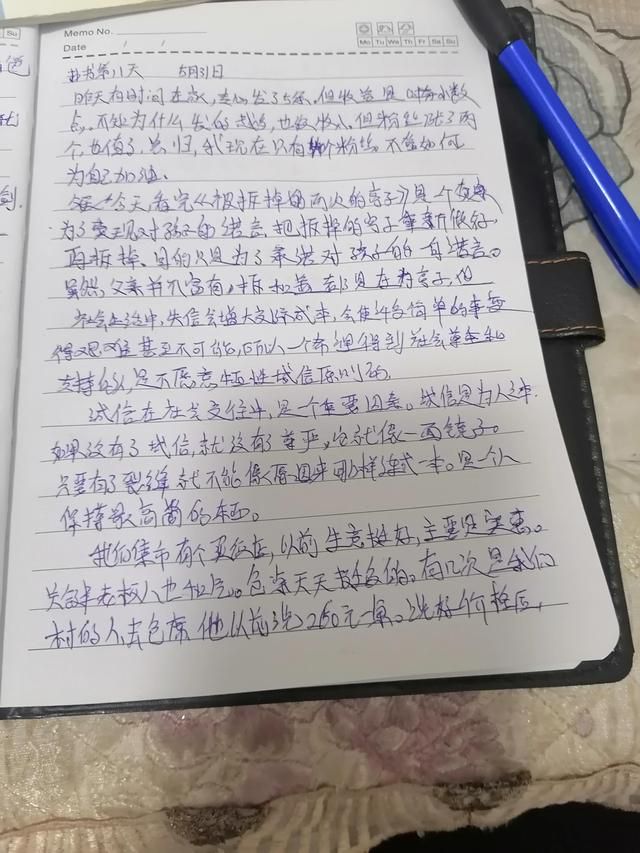 Memo No.
Date / /
Mo Tu We Th Fr Sa Su
Su
色
剑.
抄书第八天 5月31日
昨天有时间在家,发了5条,但收益是小数
点。不知为什么发的越多,也越收入,但粉丝涨了两
个,也值了。总归,我现在只有个粉丝,不管如何
为自己加油。
今天,看完《被拆掉两次的亭子》是一个父亲
为了实现对孩子的诺言,把拆掉的亭子重新做好,
再拆掉、目的只是为了承诺对孩子的一句诺言。
虽然,父亲并不富有,拆和盖都是在为亭子,但
社会生活中,失信会增大交际成本,会使许多简单的事变
得艰难甚至不可能,所以一个希望得到社会尊重和
支持的人,是不愿意牺牲诚信原则的。
诚信在社会交往中,是一个重要因素。诚信是为人之本.
如果没有了诚信,就没有了尊严,它就像一面镜子。
只要有了裂缝就不能像原来那样连成一本。是一个人
保持最高尚的东西。
我们集市有个饭店,以前生意挺好,主要是实惠。
关键老板人也和气。包席天天都有的。有几次是我们
村的人去包席他以前说260元一桌。说好价格后,